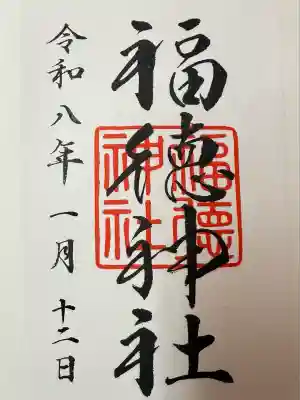 福徳神社
福徳神社
令和八年 一月 十二日